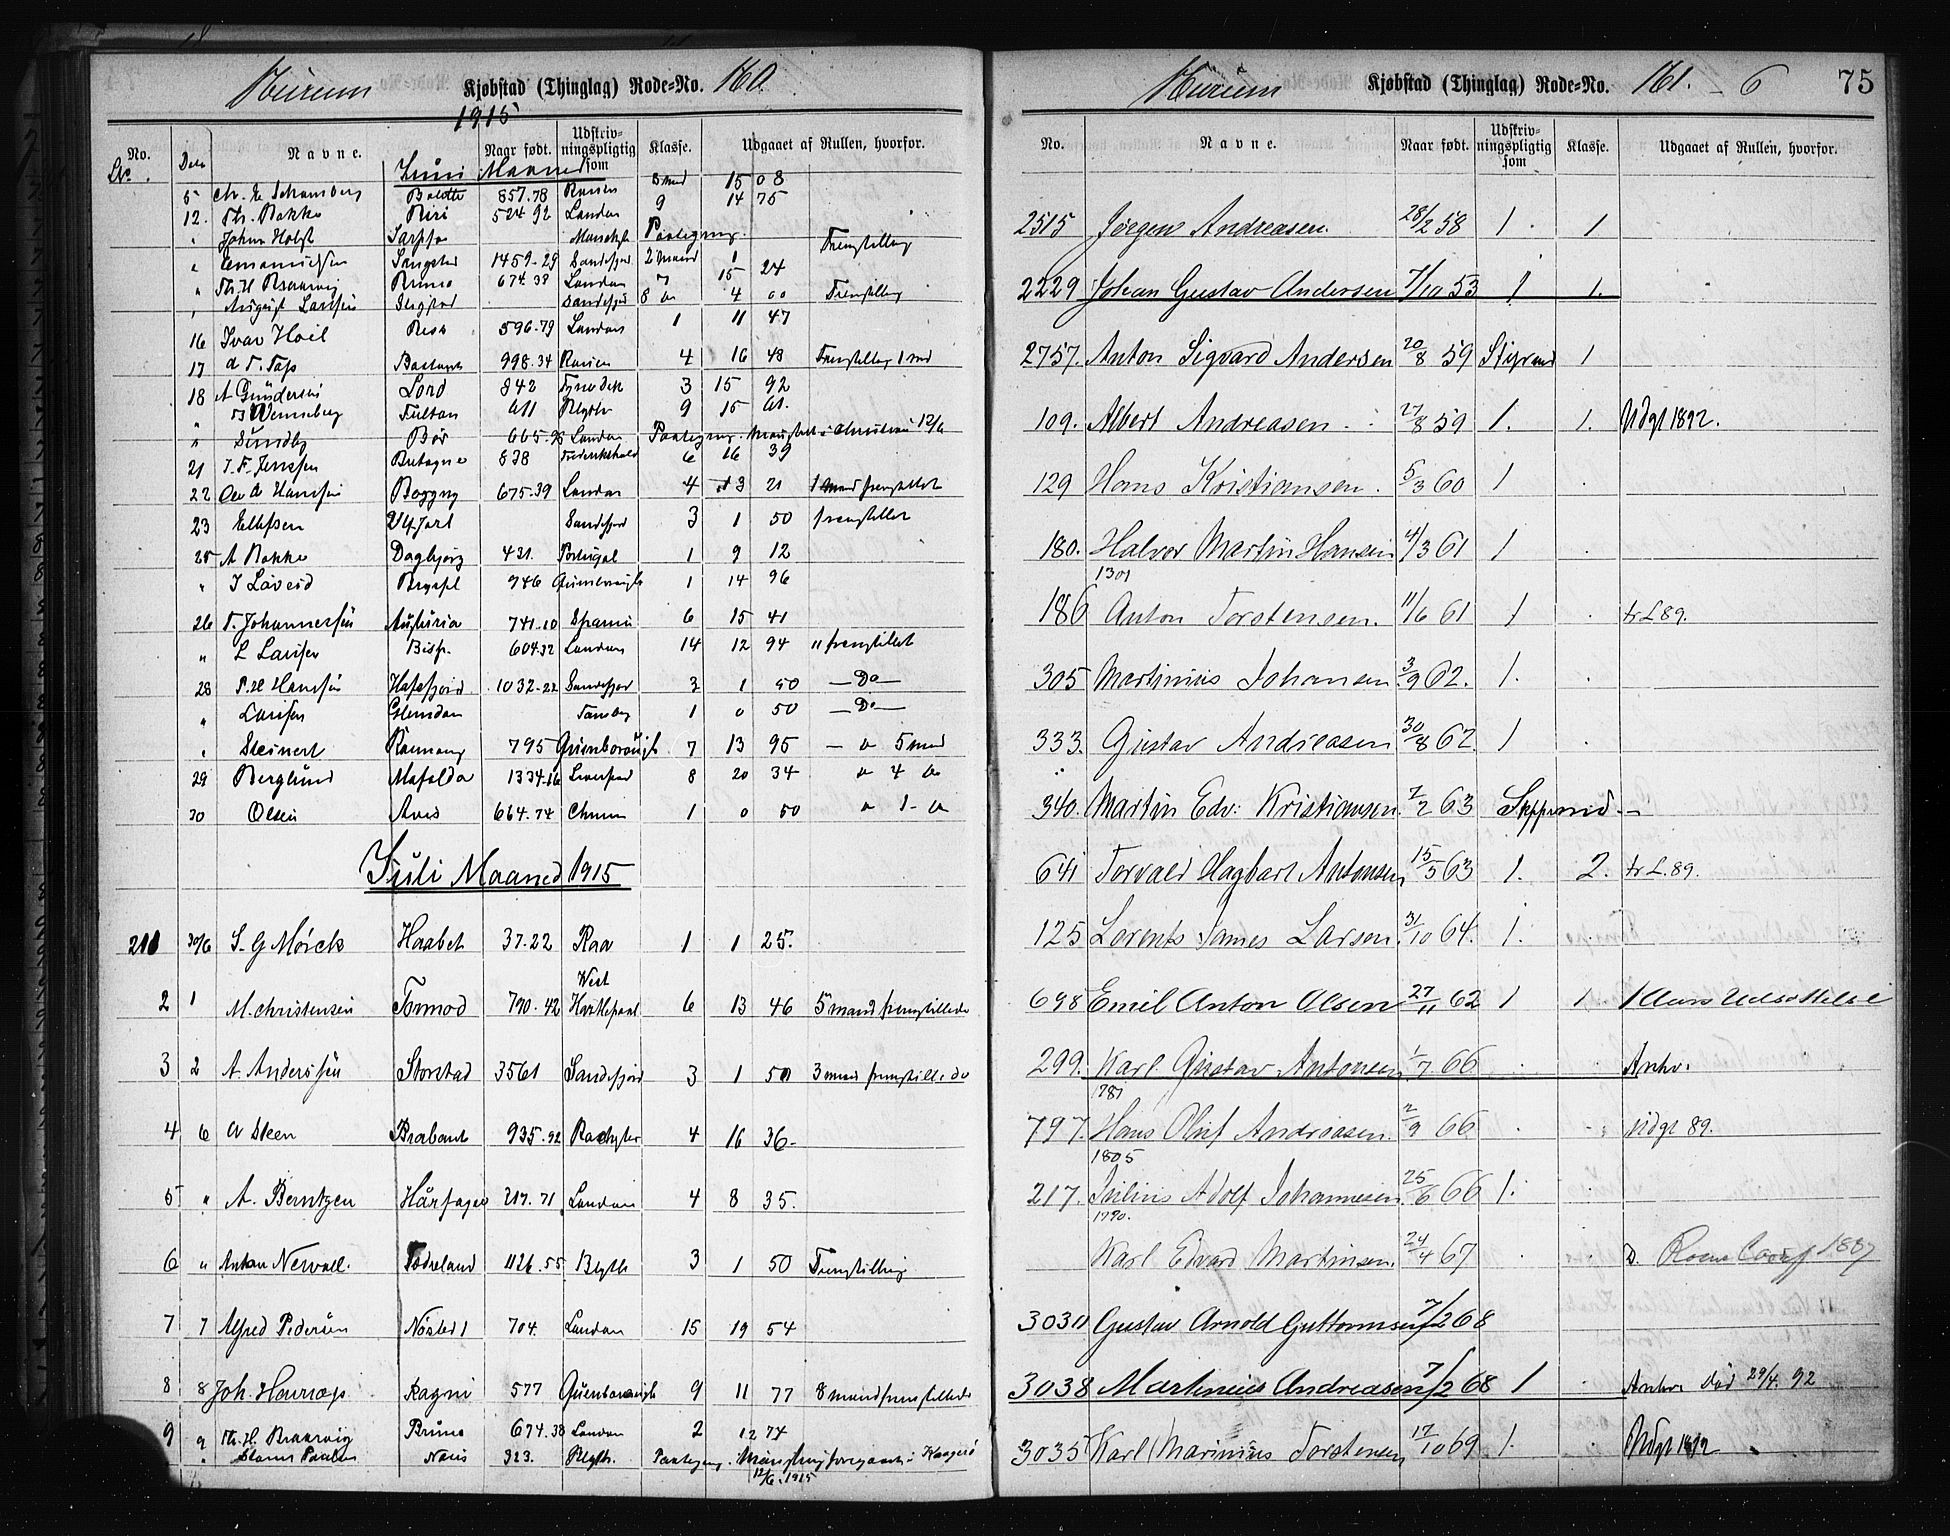 Hurum Kjøbstad (Thinglag) Rode-No. 160.
1915
No. Navne. Naar født. Udskrivningspligtig som Klasse. Udgaaet af Rullen, hvorfor.
Juni Maaned
5 Chr. E Schamberg 857.78 3 md 15 08
12. Th. Bakke Biri 524 92 London 9 14 75
" Johan Holst Sarpfos Paategng.
" Emanuelsen Sangstad 1459-29 Sandefjord 2 mand 1 Fremstilling
" Th. H Bruno 674.38 London 7 15 24
" August Larssen Sandefjord 8 do 4 00 Fremstilling
16 Ivar Hoil Resk 596.79 London 1 11 47
17 998.34 4 16 48 Fremstilling 1 md
18 A Gundersen Lord 842 3 15 92
" Wenneberg Fulton 611 Blyth 9 15 61.
" Sundby Bør 665.98 London Paategng. Mønstret i Christiania 12/6
21 T. F. Jenssen Bretagne 838 Frederikshald 6 16 39
22 Ole A Hanssen 675.39 London 4 13 21 1 mand fremstillet
23 Ellefsen Ulf Jarl Sandefjord 3 1 50 fremstillet
25 A Bakke Dagbjørg 431. Portugal 1 9 12
" J Løveid 746 Queenborough 1 14 96
26 T. Johannessen Asturia 741.10 Spanien 6 15 41
" L Larsen Bisp. 604.32 London 14 12 94 " fremstillet
28 P. H Hanssen Hafsfjord 1032-22 Sandefjord 3 1 50 — Do —
" Larssen Glendoon Tønsberg 1 0 50 — Do —
" Steinert 795 Queenborough 7 13 95 — " 5 md
29 Berglund Mafalda 1334.16 Liverpool 8 20 34 " 4 do
30 Olsen Avis 664.74 1 0 50 " 1- do
Juli Maaned 1915
211 30/6 S. G Mørck Haabet 37.22 Raa 1 1 25.
2 1 M. Christensen Tormod 790.42 West Hartlepool 6 13 46 5 mand fremstillede
3 2 A. Anderssen Storstad 3561 Sandefjord 3 1 50 3 mand fremstillede
4 6 A Steen Brabant 935.92 Rochester 4 16 36-
5 " A. Berntzen Hårfager 217.71 London 4 8 35.
6 " Anton Nerwall. Fædreland 1126.55 Blyth 3 1 50 Fremstilling
7 7 Alfred Pedersen Nøsted 1 704. London 15 19 54
8 8 Joh. Ragni 577 Queenborough 9 11 77 8 mand fremstillede
9 9 Th. H. Braarvig Bruno 674.38 London 2 12 74
" Paulsen 323. Blyth. Paategng. Mønstring foregaaet i Kragerø
12/6. 1915
Hurum Kjøbstad (Thinglag) Rode-No. 161. - 6 75
No. Navne. Naar født. Udskrivningspligtig som Klasse. Udgaaet af Rullen, hvorfor.
2515 Jørgen Andreasen. 28/2 58 1. 1
2229 Johan Gustav Andersen 7/10 53 1 1.
2757. Anton Sigvard Andersen 20/8 59 Styrmd 1
109. Albert Andreasen. 27/8 59 1. 1. Udgt 1892.
129 Hans Kristiansen. 5/3 60 1
180. Halvor Martin Hansen 4/3 61 1
1301
186 Anton Torstensen. 11/6 61 1 tr L 89.
305 Martinius Johansen. 3/9 62. 1.
333. Gustav Andreasen 30/8 62. 1
340. Martin Edv: Kristiansen. 7/2 63 Skppsmd -
641 Torvald Hagbart Antonsen 15/5 63 1. 2. tr L. 89.
125 Lorents James Larsen. 31/10 64. 1.
698 Emil Anton Olsen 27/11 62 1 1.
299. Karl Gustav Antonsen 1/7 66 Anhv.
1787
797. Hans Oluf Andreasen. 2/9 66 Udgt 89.
1805
217. Julius Adolf Johannesen. 25/6 66 1.
1790.
Karl Edvard Martinsen. 24/4 67 D. 1887
3030 Gustav Arnold Guttormsen 7/2 68
3038 Martinius Andreasen 7/2 68 1 Anhv. død 29/4. 92
3035 Karl Marinius Torstensen 17/10 69 1. Udgt 1892